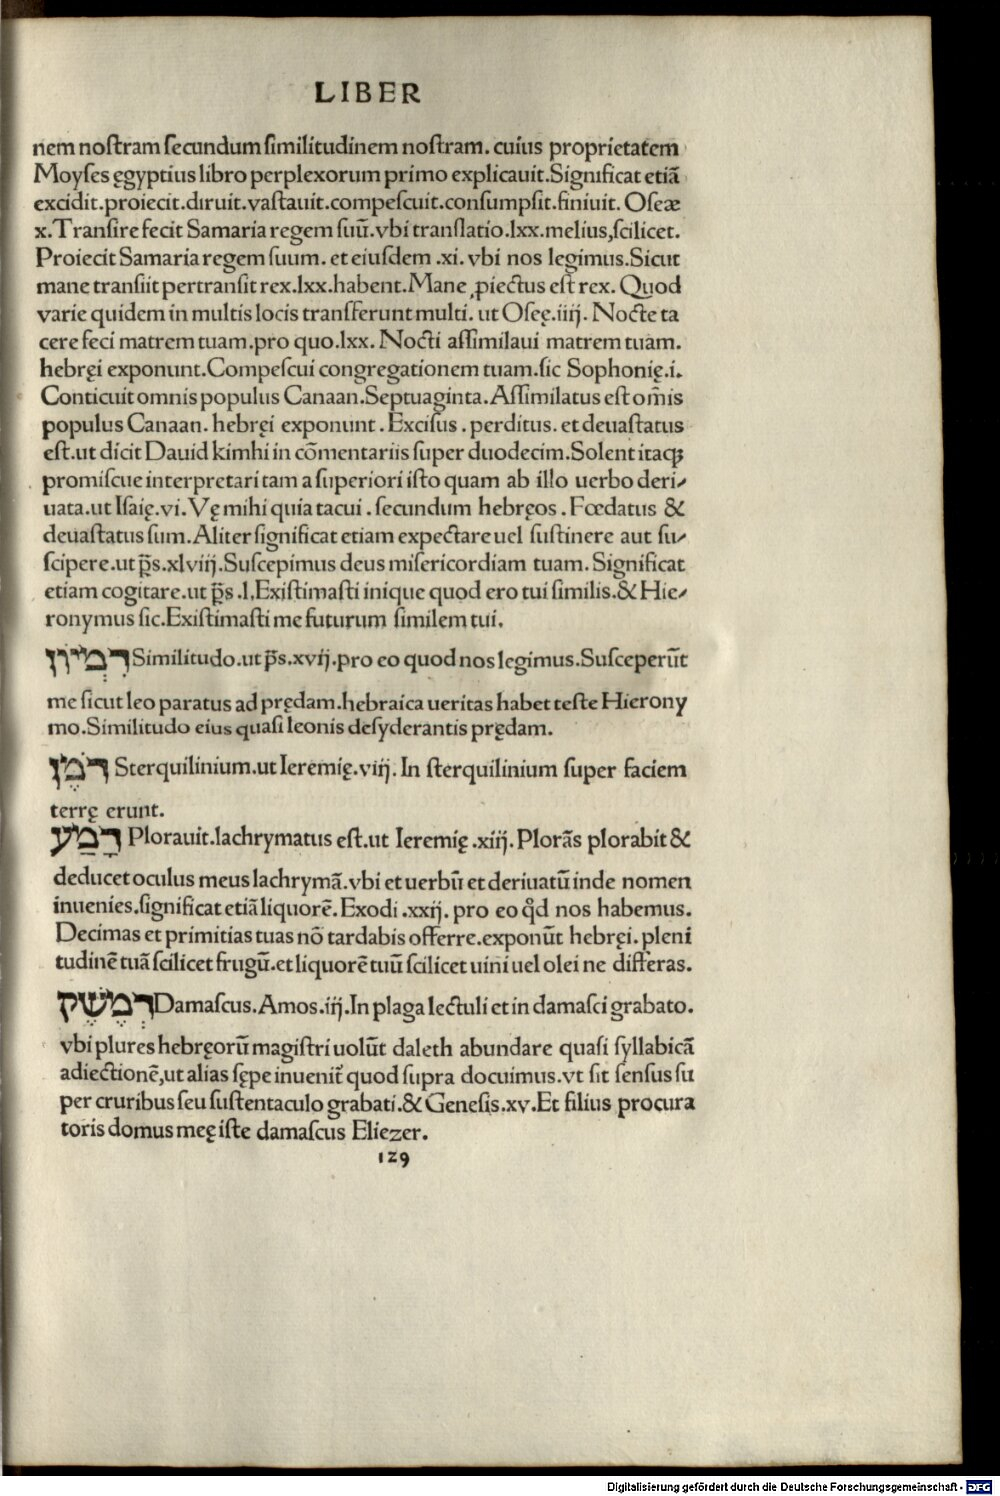 LIBER
nem noſtram ſecundum ſimilitudinem noſtram. cuius proprietatem
Moyſes ęgyptius libro perplexorum primo explicauit.Significat etiā
excidit.proiecit.diruit.vaſtauit.compeſcuit.conſumpſit.finiuit. Oſeæ
x.Tranſire fecit Samaria regem ſuū.vbi tranſlatio.lxx.melius,ſcilicet.
Proiecit Samaria regem ſuum. et eiuſdem .xi. vbi nos legimus.Sicut
mane tranſiit pertranſit rex.lxx.habent.Mane ꝓiectus eſt rex. Quod
varie quidem in multis locis tranſferunt multi. ut Oſeę.iiij. Nocte ta
cere feci matrem tuam.pro quo.lxx. Nocti aſſimilaui matrem tuam.
hebręi exponunt.Compeſcui congregationem tuam.ſic Sophonię.i.
Conticuit omnis populus Canaan.Septuaginta.Aſſimilatus eſt om̄is
populus Canaan. hebręi exponunt . Exciſus . perditus. et deuaſtatus
eſt.ut dicit Dauid kimhi in cōmentariis ſuper duodecim.Solent itaqꝫ
promiſcue interpretari tam a ſuperiori iſto quam ab illo uerbo deri⸗
uata.ut Iſaię.vi. Vę mihi quia tacui . ſecundum hebręos . Fœdatus &
deuaſtatus ſum.Aliter ſignificat etiam expectare uel ſuſtinere aut ſu⸗
ſcipere.ut p̄s.xlviij.Suſcepimus deus miſericordiam tuam. Significat
etiam cogitare.ut p̄s .l.Exiſtimaſti inique quod ero tui ſimilis.& Hie⸗
ronymus ſic.Exiſtimaſti me futurum ſimilem tui.
דִּמְיוֹן Similitudo.ut p̄s.xvij.pro eo quod nos legimus.Suſceperūt
me ſicut leo paratus ad prędam.hebraica ueritas habet teſte Hierony
mo.Similitudo eius quaſi leonis deſyderantis prędam.
דֹּמֶן Sterquilinium.ut Ieremię.viij. In ſterquilinium ſuper faciem
terrę erunt.
דָּמַע Plorauit.lachrymatus eſt.ut Ieremię .xiij. Plorās plorabit &
deducet oculus meus lachrymā.vbi et uerbū et deriuatū inde nomen
inuenies.ſignificat etiā liquorē. Exodi .xxij. pro eo qđ nos habemus.
Decimas et primitias tuas nō tardabis offerre.exponūt hebręi. pleni
tudinē tuā ſcilicet frugū.et liquorē tuū ſcilicet uini uel olei ne differas.
דְּמֶשֶׁק Damaſcus. Amos.iij. In plaga lectuli et in damaſci grabato.
vbi plures hebręorū magiſtri uolūt daleth abundare quaſi ſyllabicā
adiectionē,ut alias ſępe inuenit̄ quod ſupra docuimus.vt ſit ſenſus ſu
per cruribus ſeu ſuſtentaculo grabati.& Geneſis.xv.Et filius procura
toris domus meę iſte damaſcus Eliezer.
129
Digitalisierung gefördert durch die Deutsche Forschungsgemeinschaft - DFG